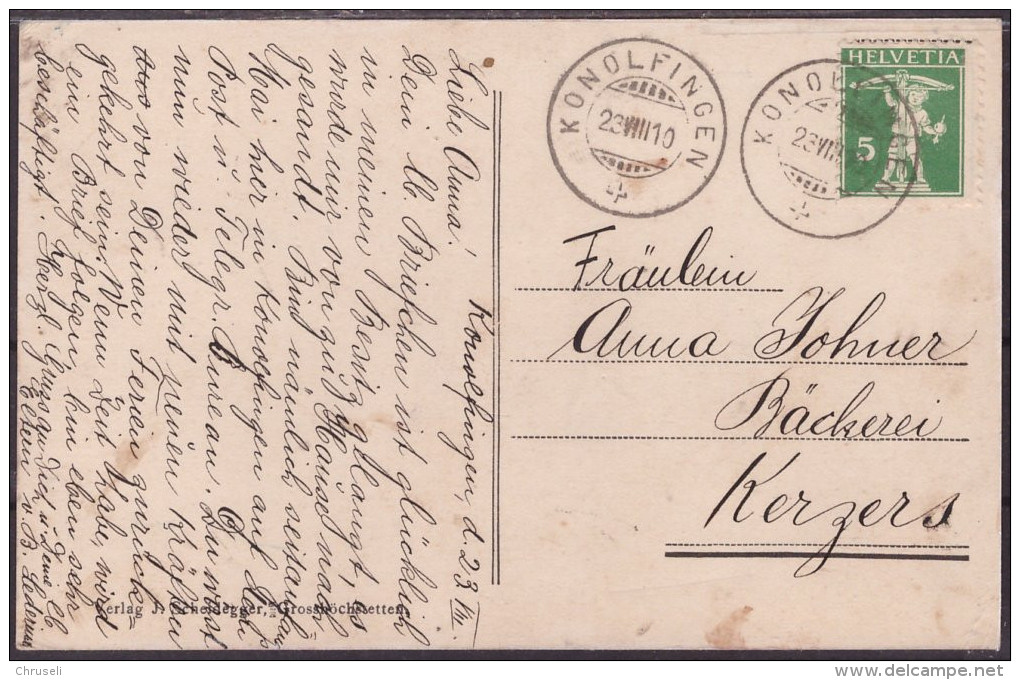 KONOLFINGEN
23 VIII 10
KONOLFINGEN
23 VIII
HELVETIA
5
Fräulein
Anna Johner
Bäckerei
Kerzers
Konolfingen, d. 23. VIII.
Liebe Anna!
Dein lb. Briefchen ist glücklich
in meinen Besitz gelangt, es
wurde mir von zu Hause nach-
gesandt. Bin nämlich seit Anf.
Mai hier in Konolfingen auf
Post u. Telegr. Bureau. Du wirst
nun wieder mit neuen Kräften
von Deinen Ferien zurück-
gekehrt sein. Wenn Zeit habe, wird
ein Brief folgen, bin eben sehr
beschäftigt. Herzl. Grüsse an Dich u. Deine lb.
Eltern v. B.
Verlag J. Scheidegger, Grosshöchstetten.
Chruseli
delcampe.net